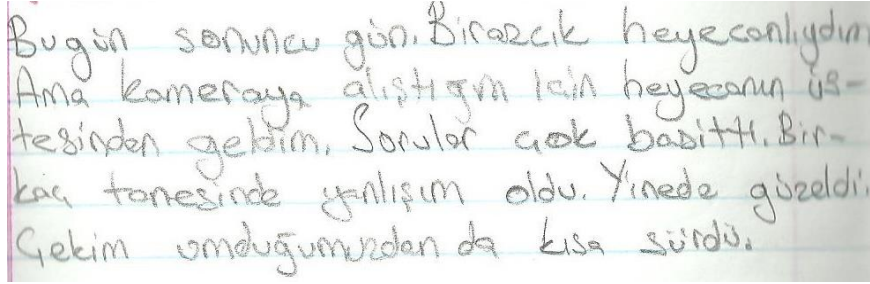 Bugün sonuncu gün. Birazcık heyecanlıydım
Ama kameraya alıştığım için heyecanın üs-
tesinden geldim. Sorular çok basitti. Bir-
kaç tanesinde yanlışım oldu. Yinede güzeldi.
Çekim umduğumuzdan da kısa sürdü.